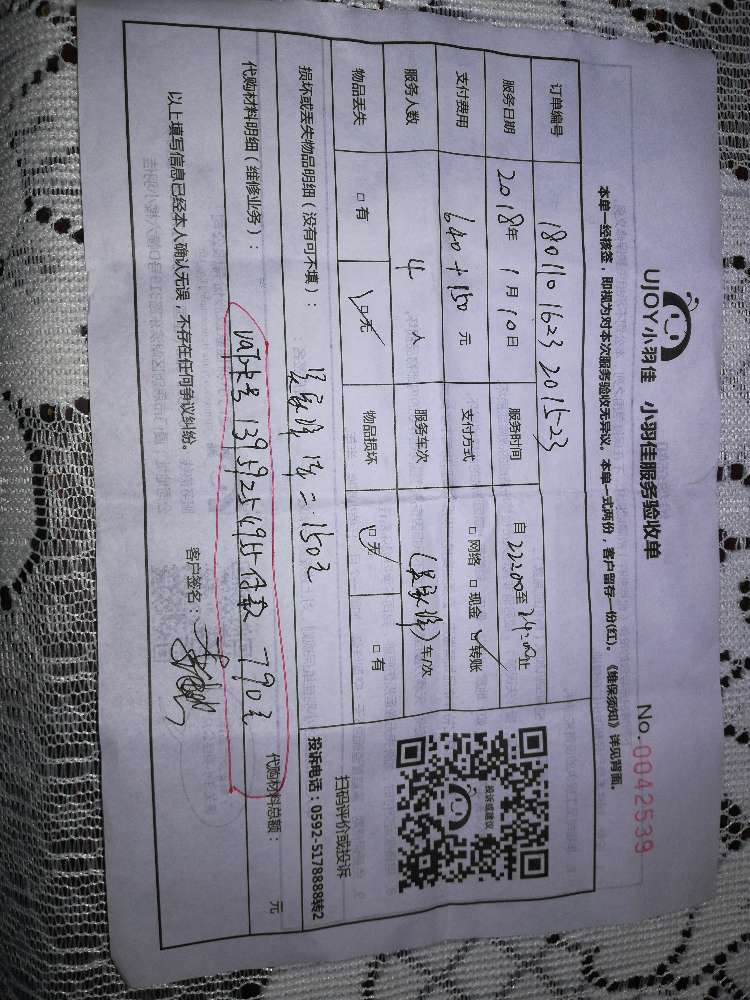 UJOY小羽佳 小羽佳服务验收单
No.0042539
本单一经核签，即视为对本次服务验收无异议。本单一式两份，客户留存一份(红)。《维保须知》详见背面。
订单编号 180110 1623 2015-23
服务日期 2018年 1月 10日 服务时间 自22:00至24:00止
支付费用 640+150 元 支付方式 □网络 □现金 □转账
服务人数 4 人 服务车次 车/次
物品丢失 □有 □无 物品损坏 □无 □有
损坏或丢失物品明细（没有可不填）： 150元
代购材料明细（维修业务）： 代购材料总额： 元
卡号 付款 790元
以上填写信息已经本人确认无误，不存在任何争议纠纷。 客户签名：
投诉或建议
扫码评价或投诉
投诉电话：0592-5178888转2